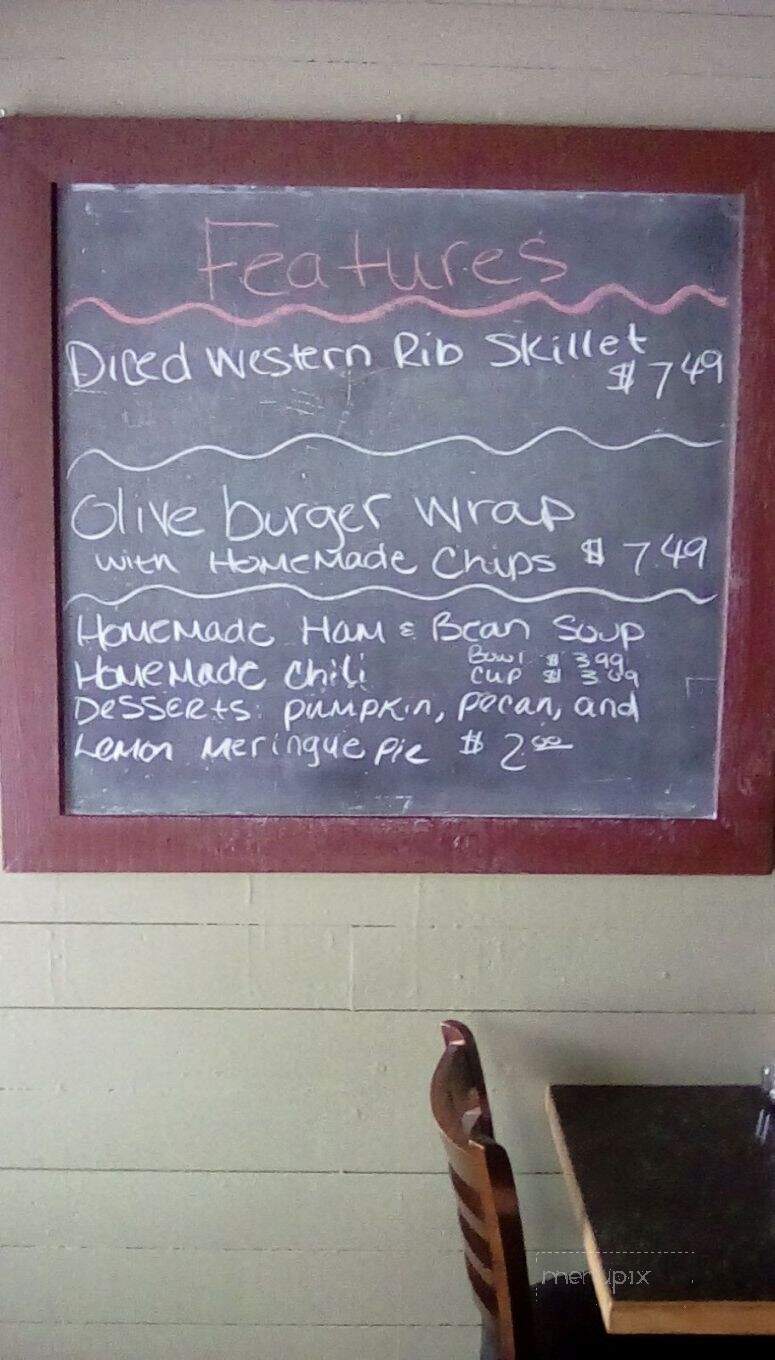 Features
Diced Western Rib Skillet
$ 7 49
Olive burger wrap
with HomeMade Chips $ 7.49
HomeMade Ham & Bean Soup
Bowl $ 3 99
HomeMade Chili
Cup $
Desserts: pumpkin, pecan, and
Lemon Meringue pie $ 2 00
menupix